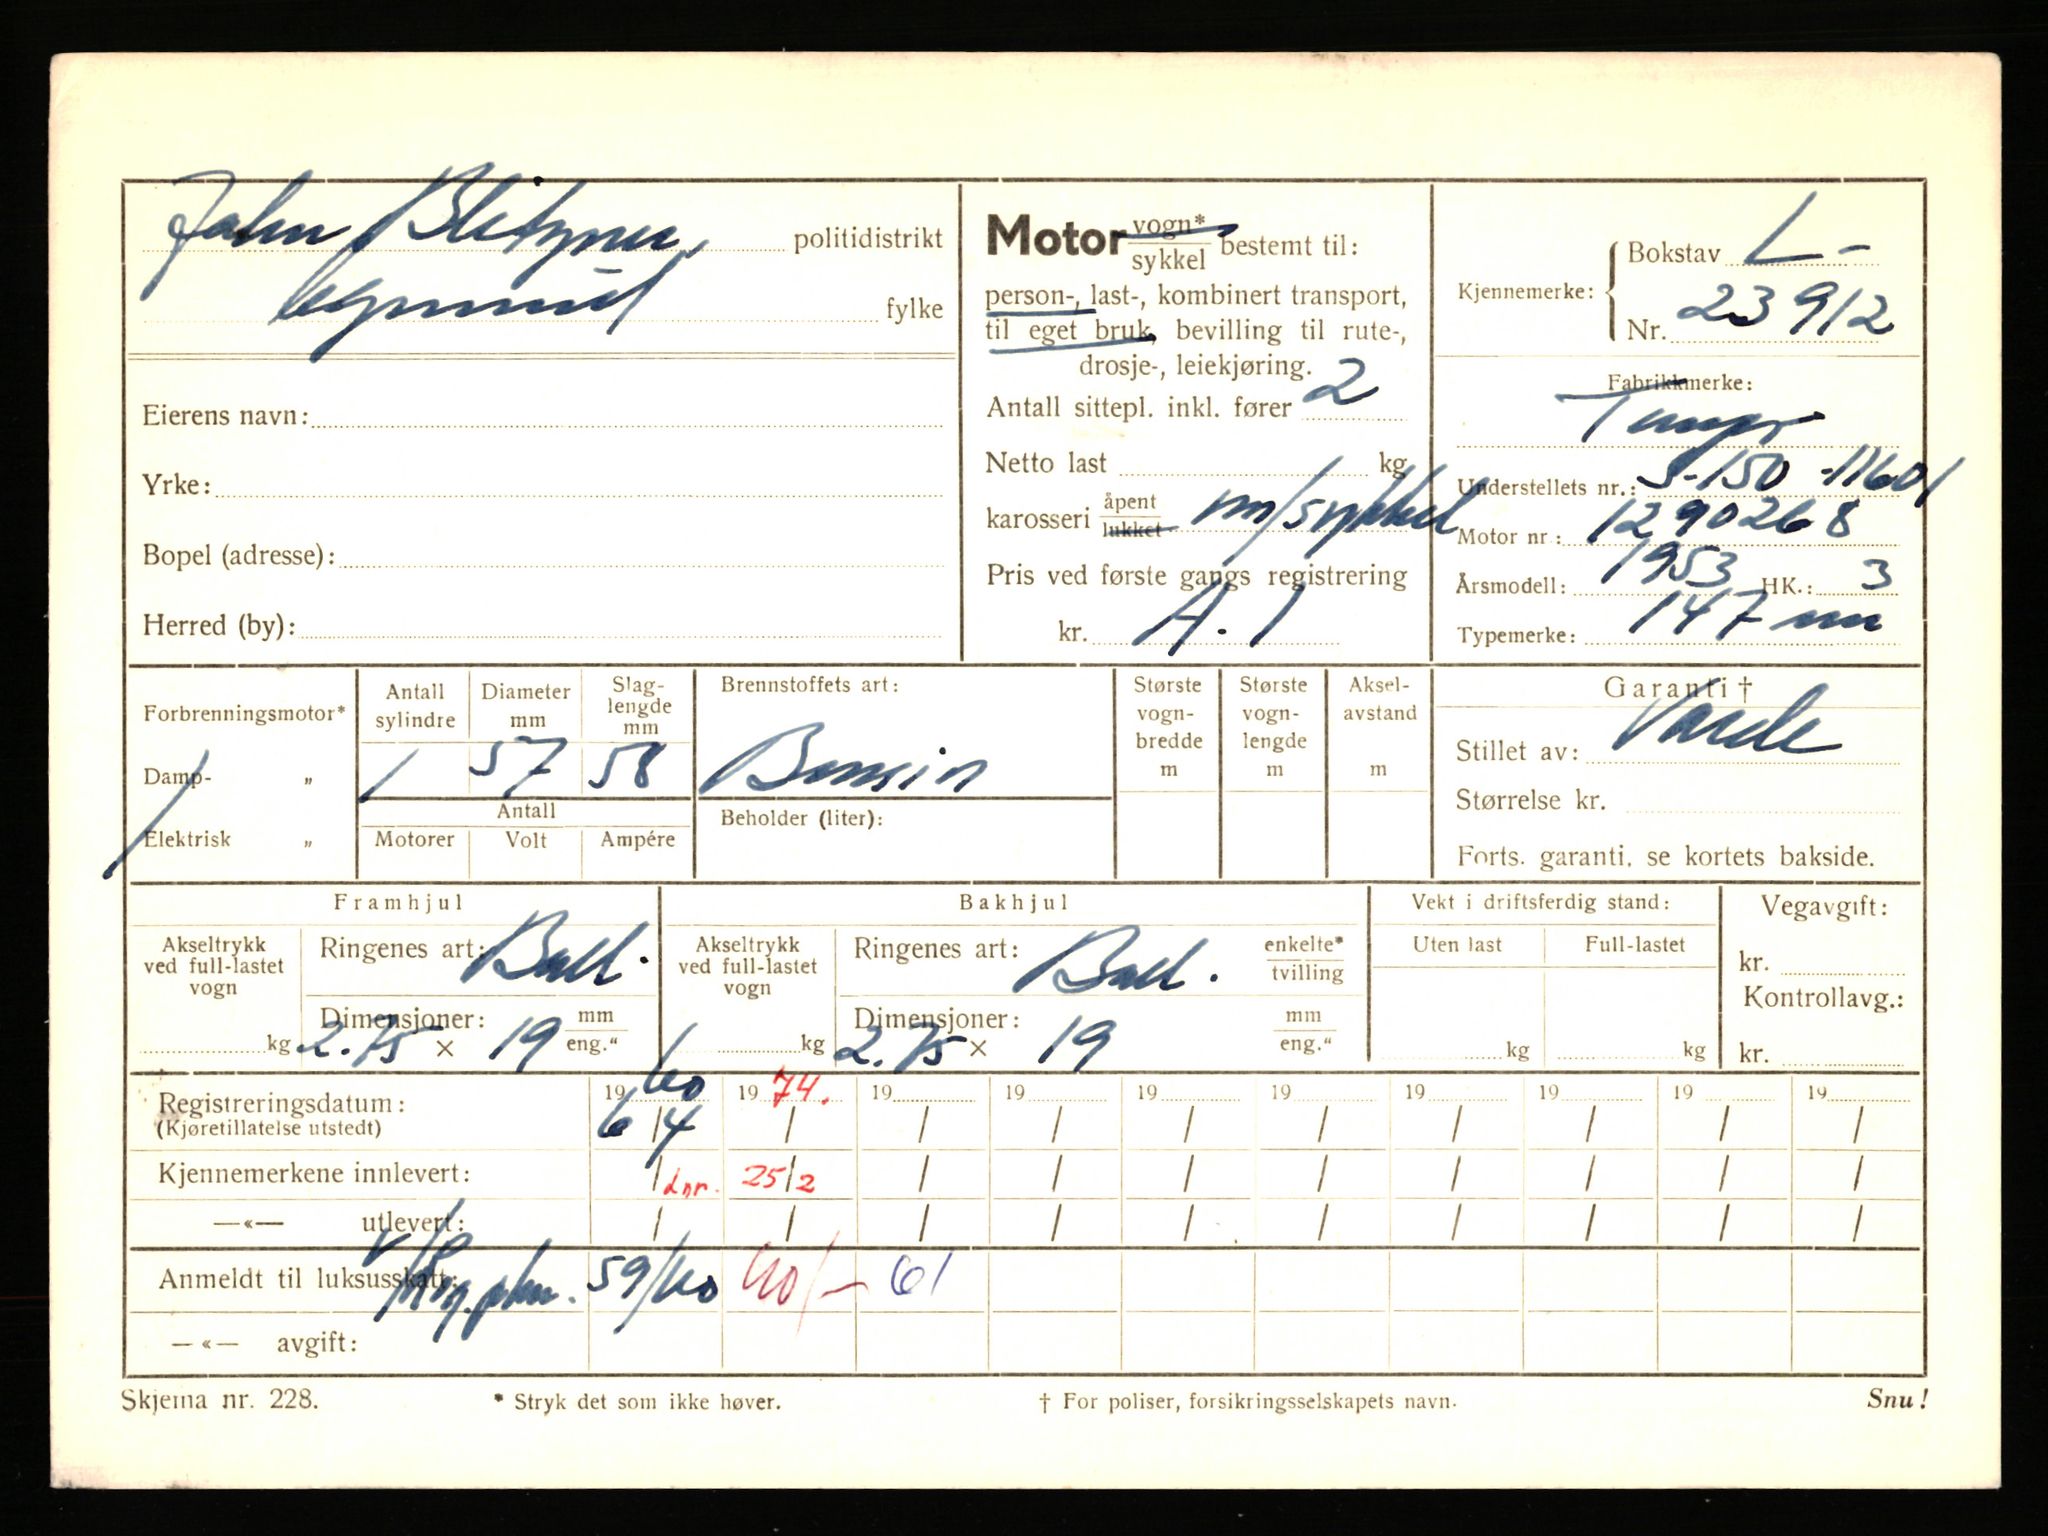 John
politidistrikt
fylke
Eierens navn:
Yrke:
Bopel (adresse):
Herred (by):
Motor vogn* / sykkel bestemt til:
person-, last-, kombinert transport,
til eget bruk, bevilling til rute-,
drosje-, leiekjøring.
Antall sittepl. inkl. fører 2
Netto last kg
karosseri åpent / lukket m/sykkel
Pris ved første gangs registrering
kr. A.1
Kjennemerke: Bokstav L-
Nr. 23912
Fabrikkmerke:
Tempo
Understellets nr.: S-150-11601
Motor nr: 1290268
Årsmodell: 1953 HK.: 3
Typemerke: 147
Forbrenningsmotor*
Damp- „
Elektrisk „
Antall sylindre 1
Diameter mm 57
Slag-lengde mm 58
Antall
Motorer Volt Ampére
Brennstoffets art:
Bensin
Beholder (liter):
Største vogn-bredde m
Største vogn-lengde m
Aksel-avstand m
Garanti †
Stillet av: Varde
Størrelse kr.
Forts. garanti, se kortets bakside.
Framhjul
Akseltrykk ved full-lastet vogn kg
Ringenes art: Ball.
Dimensjoner: 2.75 x 19 mm / eng."
Bakhjul
Akseltrykk ved full-lastet vogn kg
Ringenes art: Ball. enkelte* / tvilling
Dimensjoner: 2.75 x 19 mm / eng."
Vekt i driftsferdig stand:
Uten last Full-lastet
kg kg
Vegavgift:
kr.
Kontrollavg.:
kr.
Registreringsdatum: 19 60 19 74. 19 19 19 19 19 19 19 19
(Kjøretillatelse utstedt) 6/4 / / / / / / / / /
Kjennemerkene innlevert: / Lnr. 25/2 / / / / / / / /
—«— utlevert: / / / / / / / / / /
Anmeldt til luksusskatt: 59/60 40/- 61
—«— avgift:
Skjema nr. 228. * Stryk det som ikke høver. † For poliser, forsikringsselskapets navn. Snu!